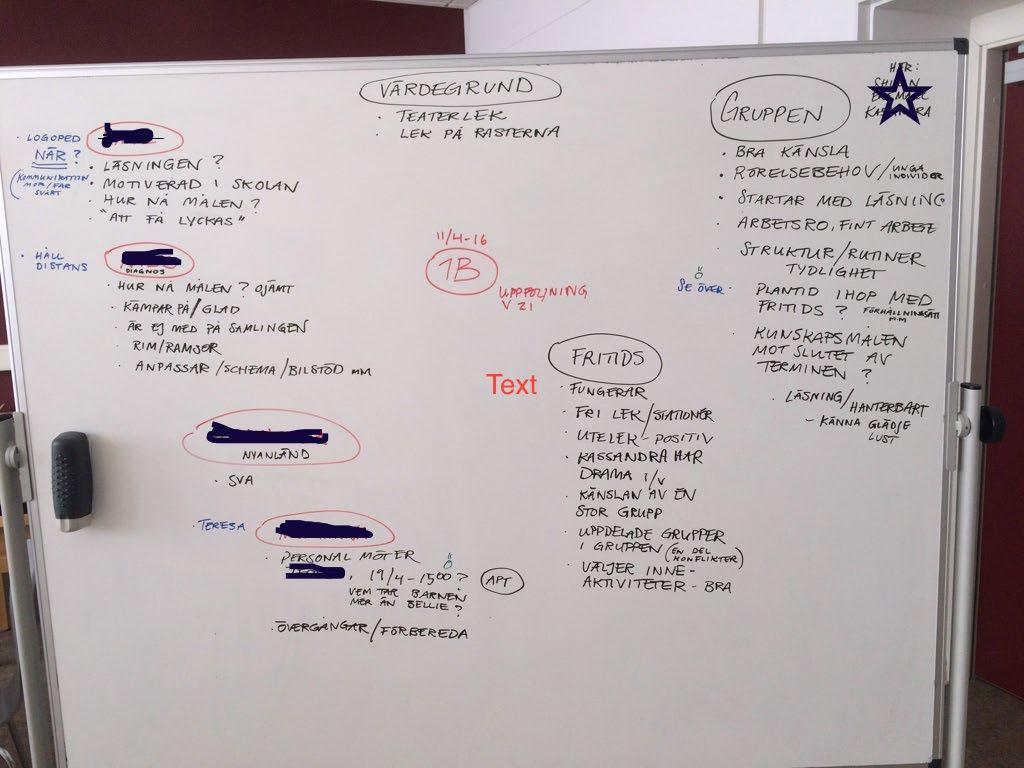 VÄRDEGRUND
· TEATERLEK
· LEK PÅ RASTERNA
· LOGOPED
NÄR?
(KOMMUNIKATION
MOR/FAR
SVÅRT
· LÄSNINGEN?
· MOTIVERAD I SKOLAN
· HUR NÅ MÅLEN?
· "ATT FÅ LYCKAS"
· HÅLL
DISTANS
DIAGNOS
· HUR NÅ MÅLEN? OJÄMT
· KÄMPAR PÅ/GLAD
· ÄR EJ MED PÅ SAMLINGEN
· RIM/RAMSOR
· ANPASSAR/SCHEMA/BILSTÖD MM
NYANLÄND
· SVA
· TERESA
· PERSONAL MÖTER
, 19/4-1500?
VEM TAR BARNEN
MER ÄN BELLIE?
APT
· ÖVERGÅNGAR/FÖRBEREDA
11/4-16
1B
UPPFÖLJNING
V 21
Text
FRITIDS
· FUNGERAR
· FRI LEK/STATIONER
· UTELEK - POSITIV
· KASSANDRA HAR
DRAMA 1/V
· KÄNSLAN AV EN
STOR GRUPP
· UPPDELADE GRUPPER
I GRUPPEN (EN DEL
KONFLIKTER)
· VÄLJER INNE-
AKTIVITETER - BRA
GRUPPEN
HÄR:
· BRA KÄNSLA
· RÖRELSEBEHOV/UNGA
INDIVIDER
· STARTAR MED LÄSNING
· ARBETSRO, FINT ARBETE
· STRUKTUR/RUTINER
TYDLIGHET
SE ÖVER · PLANTID IHOP MED
FRITIDS? FÖRHÅLLNINGSÄTT
MM
· KUNSKAPSMÅLEN
MOT SLUTET AV
TERMINEN?
· LÄSNING/HANTERBART
- KÄNNA GLÄDJE
LUST